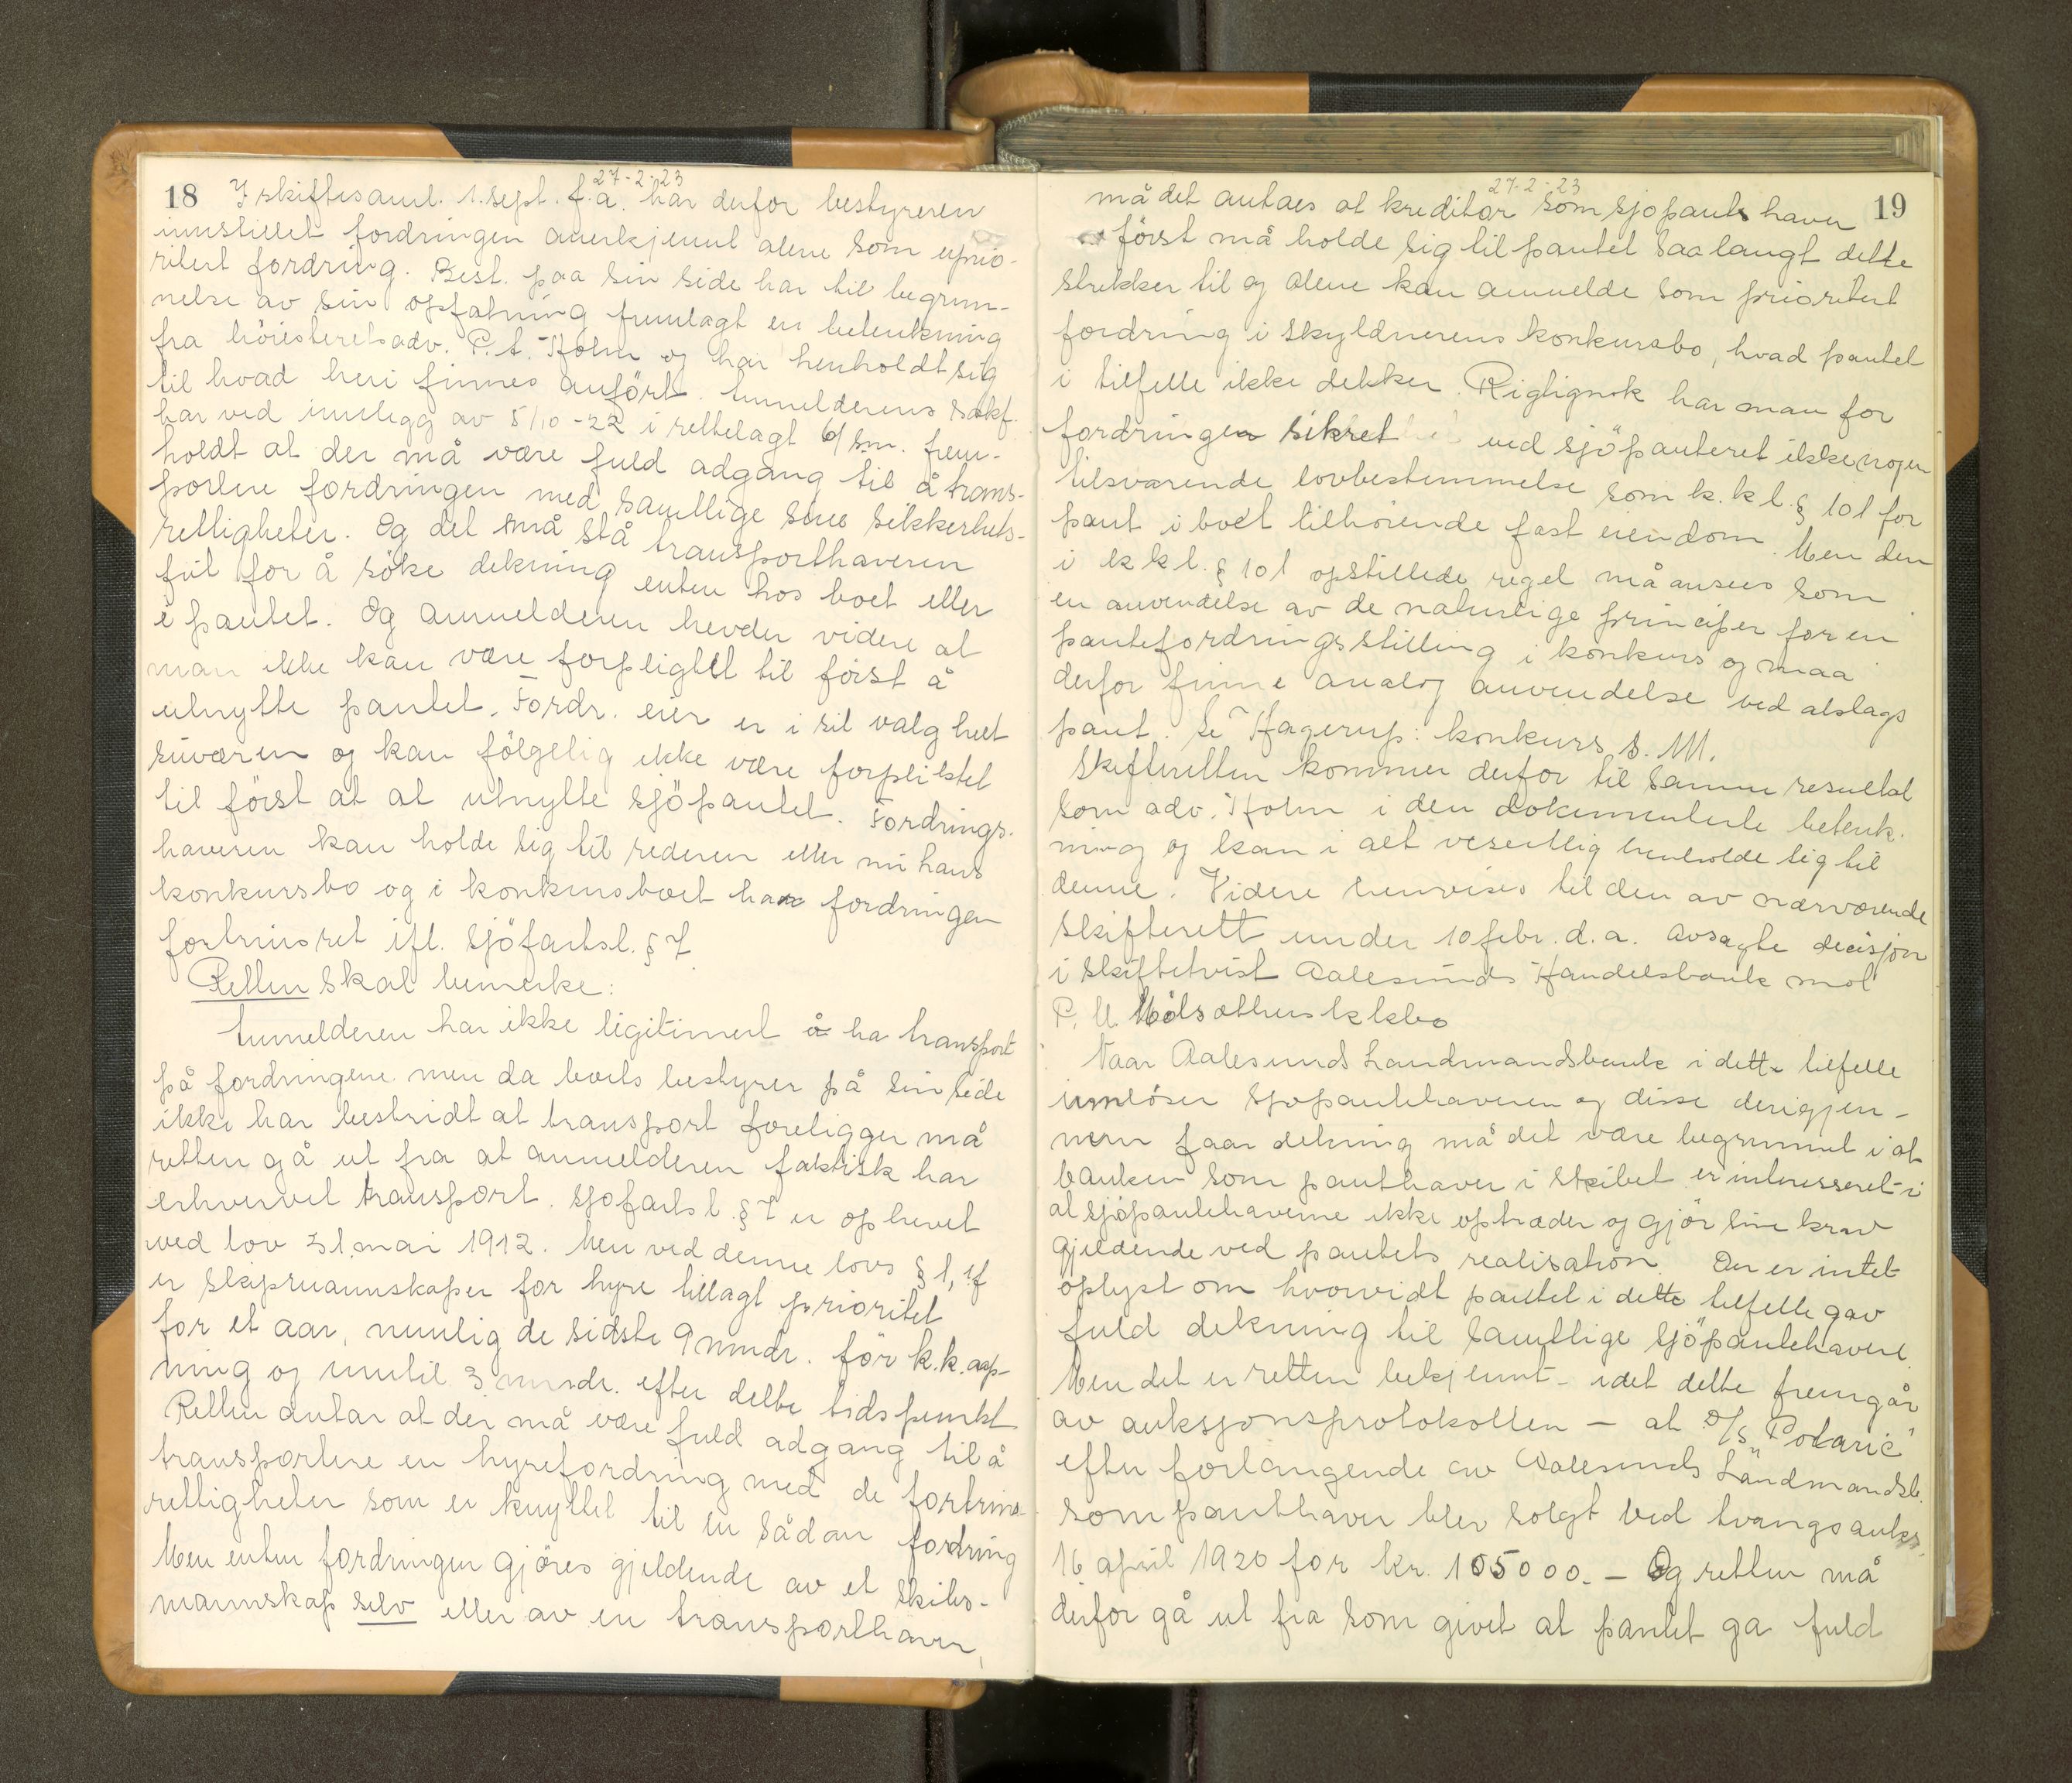 27-2-23
18 I skiftesaml. 1. sept. f.a. har derfor bestyreren
innstillet fordringen anerkjennt alene som uprio-
ritert fordring. Best. paa sin side har til begrun-
nelse av sin opfatning fremlagt en betenkning
fra höiesteretsadv. P. A. Holm og har henholdt sig
til hvad heri finnes anfört. Anmelderens sakf.
har ved innlegg av 5/10-22 i rettelagt 6/s.m. frem-
holdt at der må være fuld adgang til å trans-
portere fordringen med samtlige sine sikkerhets-
rettigheter. Og det må stå transporthaveren
frit for å söke dekning enten hos boet eller
i pantet. Og anmelderen hevder videre at
man ikke kan være forpligtet til först å
utnytte pantet. Fordr. eier er i sit valg helt
suveren og kan fölgelig ikke være forpliktet
til först at at utnytte sjöpantet. Fordrings-
haveren kan holde sig til rederen eller nu hans
konkursbo og i konkursboet har fordringen
fortrinsret ifl. sjöfartsl. § 7
Retten skal bemerke:
Anmelderen har ikke legitimert å ha transport
på fordringene men da boets bestyrer på sin side
ikke har bestridt at transport foreligger må
retten gå ut fra at anmelderen faktisk har
erhvervet transport. Sjofartsl. § 7 er ophevet
ved lov 31 mai 1912. Men ved denne lovs § 1, if
er skipsmannskaper for hyre tillagt prioritet
for et aar, nemlig de sidste 9 mndr. för k.k. aap-
ning og inntil 3 mndr. efter dette tidspunkt
Retten antar at der må være fuld adgang til å
transportere en hyrefordring med de fortrins-
rettigheter som er knyttet til en sådan fordring
Men enten fordringen gjöres gjeldende av et skibs-
mannskap selv eller av en transporthaver,
27-2-23
må det antaes at kreditor som sjopanthaver 19
först må holde sig til pantet saa langt dette
strekker til og alene kan anmelde som prioritert
fordring i skyldnerens konkursbo, hvad pantet
i tilfelle ikke dekker. Rigtignok har man for
fordringer sikret ved sjöpanteret ikke nogen
tilsvarende lovbestemmelse som k.k l. § 101 for
pant i boet tilhörende fast eiendom. Men den
i k k l. § 101 opstillede regel må ansees som
en anvendelse av de naturlige principer for en
pantefordrings stilling i konkurs og maa
derfor finne analog anvendelse ved alslags
pant. Se Hagerup: konkurs, s. 111.
Skifteretten kommer derfor til samme resultat
som adv. Holm i den dokumenterte betenk-
ning og kan i alt vesentlig henholde sig til
denne. Videre henvises til den av nærværende
skifterett under 10 febr. d.a. avsagte decisjon
i skiftetvist Aalesunds Handelsbank mot
P. U. Molsæthers k kbo
Naar Aalesunds Landmandsbank i dette tilfelle
innlöser sjopantehaveren og disse derigjen-
nem faar dekning må det være begrunnet i at
banken som panthaver i skibet er interesseret i
at sjöpantehaverne ikke optræder og gjör sine krav
gjeldende ved pantets realisation. Der er intet
oplyst om hvorvidt pantet i dette tilfelle gav
fuld dekning til samtlige sjöpantehavere.
Men det er retten bekjennt - idet dette fremgår
av auksjonsprotokollen - at D/S "Polaric"
efter forlangende av Aalesunds Landmandsb.
som panthaver blev solgt ved tvangsauks.
16 april 1920 for kr. 105000. - Og retten må
derfor gå ut fra som givet at pantet ga fuld